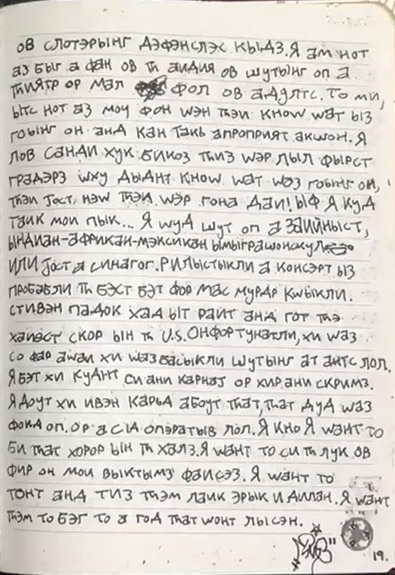 ОВ СЛОТЭРЫНГ ДЭФЭНСЛЭС КЫДЗ. Я АМ НОТ
АЗ БЫГ А ФАН ОВ Th АИДИЯ ОВ ШУТЫНГ ОП А
ТhИЯТР ОР МАЛ ФОЛ ОВ АДУЛТС. ТО МИ,
ЫТС НОТ АЗ МОЧ ФОН WЭН ThЭИ KNOW WAT ЫЗ
ГОЫНГ ОН АНД КАН ТАКЬ АПРОПРИЯТ АКШОН. Я
ЛОВ САНДИ ХУК БИКОЗ ТhИЗ WЭР ЛЫЛ ФЫРСТ
ГРАДЭРЗ WХУ ДЫДНТ KNOW WAT WАЗ ГОЫНГ ОН,
ThЭИ JОСТ, НЭW ThЭИ WЭР ГОНА ДАИ! ЫФ Я КУД
ТАИК МОИ ПЫК... Я WУД ШУТ ОП А ЗАИЙНЫСТ,
ЫНДИАН-АФРИКАН-МЭКСИКАН ЫМЫГРАШОН СКУЛ
ИЛИ JОСТ А СИНАГОГ. РИЛЫСТЫКЛИ А КОНСЭРТ ЫЗ
ПРОБАБЛИ Th БЭСТ БЭТ ФОР МАС МУРДР КWЫКЛИ.
СТИВЭН ПАДОК ХАД ЫТ РАЙТ АНД ГОТ ThЭ
ХАИЭСТ СКОР ЫН Th U.S. ОНФОРТУНАТЛИ, ХИ WАЗ
СО ФАР АWАИ ХИ WАЗ БАСЫКЛИ ШУТЫНГ АТ АНТС ЛОЛ.
Я БЭТ ХИ КУДНТ СИ АНИ КАРНАJ ОР ХИР АНИ СКРИМЗ.
Я ДОУТ ХИ ИВЭН КАРЬД АБОУТ ThАТ, ThАТ ДУД WАЗ
ФОКД ОП. ОР А CIA ОПЭРАТЫВ ЛОЛ. Я КНО Я WАНТ ТО
БИ ThАТ ХОРОР ЫН Th ХАЛЗ. Я WАНТ ТО СИ Th ЛУК ОВ
ФИР ОН МОИ ВЫКТЫМЗ ФАИСЭЗ. Я WАНТ ТО
ТОНТ АНД ТИЗ ThЭМ ЛАИК ЭРЫК И ДИЛАН. Я WАНТ
ThЭМ ТО БЭГ ТО А ГОД ThАТ WОНТ ЛЫСЭН.
19.